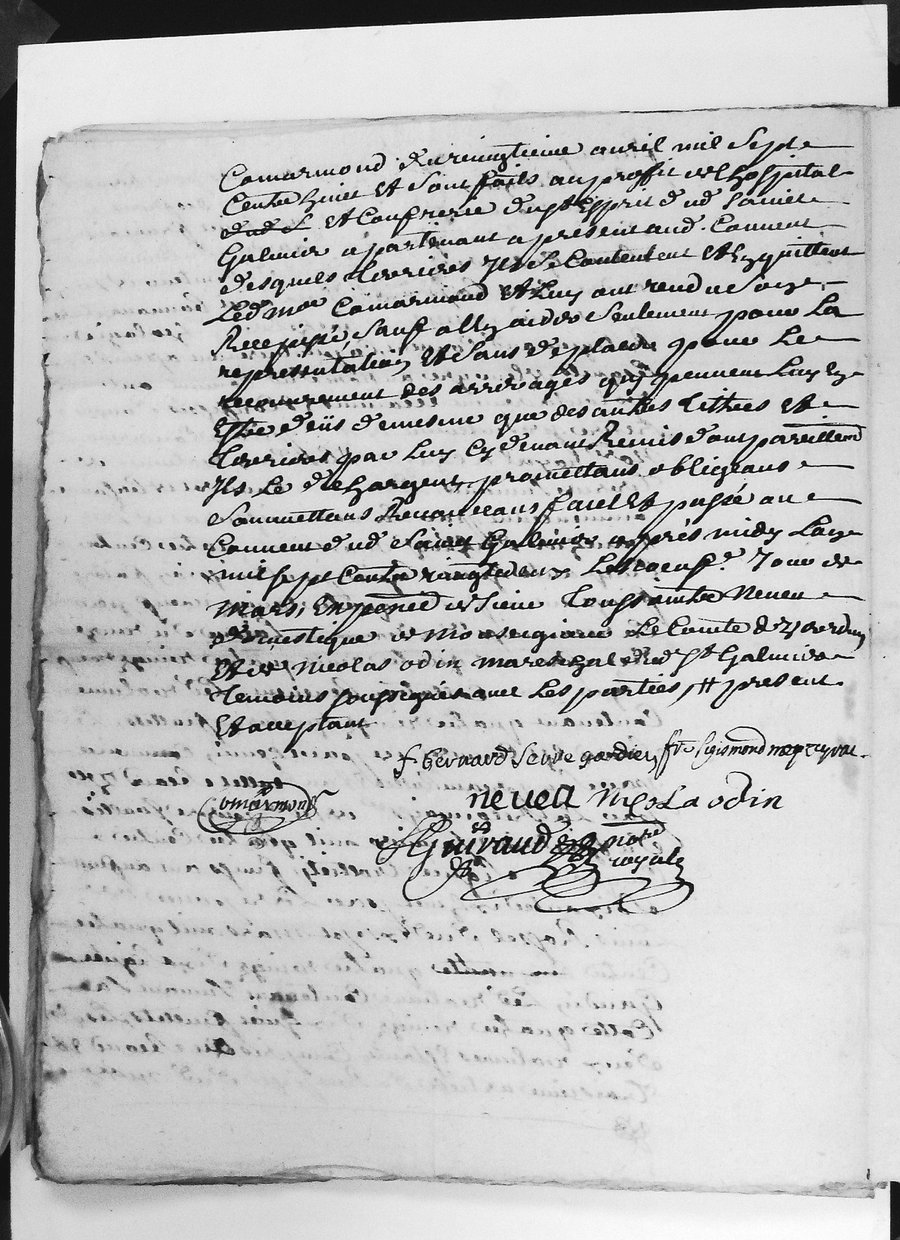 Camarmond du vingtieme auril mil Sept
Centz huict Et Sont faits au proffit de lhospital
dud. Et Confrerie du st Esprit dud Sainct
Galmier apartenant apresent aud. Conuent
desquels terriers Ils Se Contentent Et En quittent
Led mre Camarmond Et Luy ont rendu Son
Recepissé Sauf a Luy aider Seulement pour La
representation Et Sans deplacer pour Le
recouurement des arrerages quj peuuent Luy En
Estre deüs de mesme que des autres tiltres Et
terriers par Luy Cy deuant Remis dont pareillemt
Ils Le dechargent, promettans, obligeans
Soumettans Renonceans faict Et passé au
Conuent dud Sainct Galmier apres midy Lan
mil Sept Centz vingt deux Le Jour de
Mars, En presence de Sieur Toussainctz Neueu
domestique de Monseigneur Le Comte de
Et de Nicolas odin mareschal dud St Galmier
Temoins soussignés auec Les parties present
Et acceptant
f bernard Serre gardien fr Sigismond
Comarmond neueu nicolas odin
Guiraud notre
royal